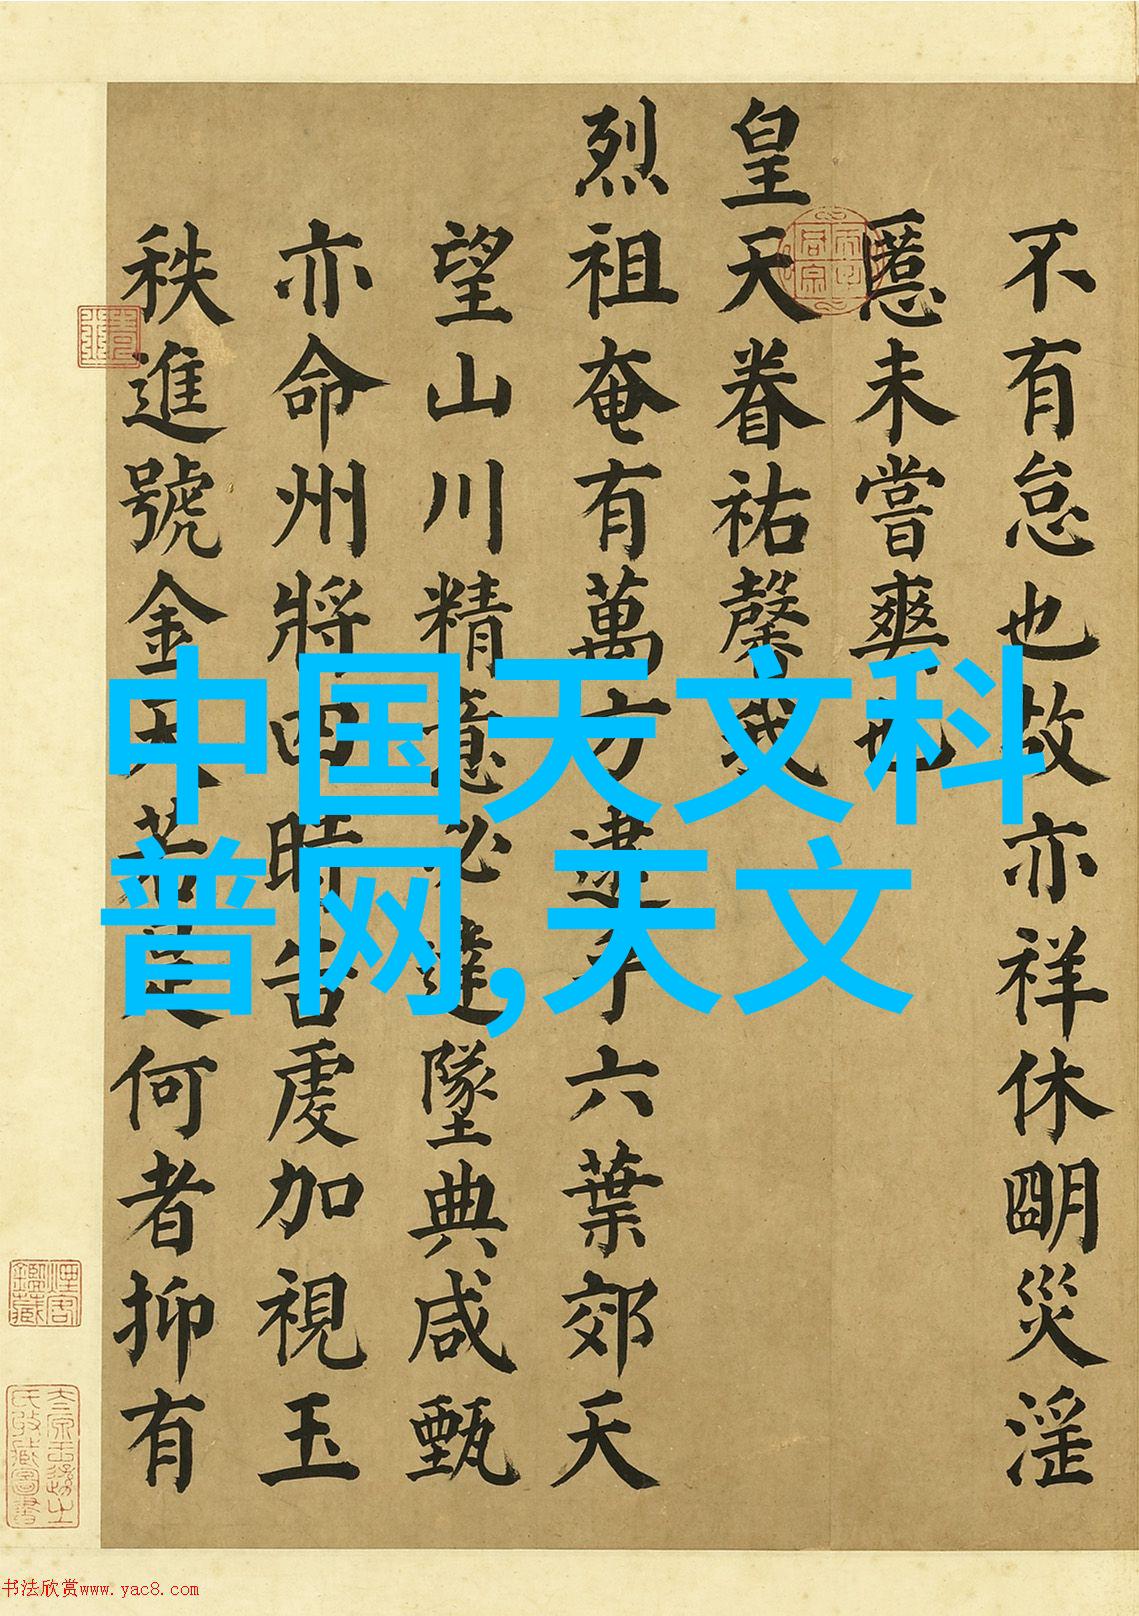 不有怠也故亦祥休朙災淫
慝未嘗爽也
皇天眷祐馨我
烈祖奄有萬方逮乎六葉郊天
望山川精意必達墜典咸甄
亦命州將四時告虔加視玉
秩進號金天是何者抑有
中国天文科
普网,天文
书法欣赏www.yac8.com